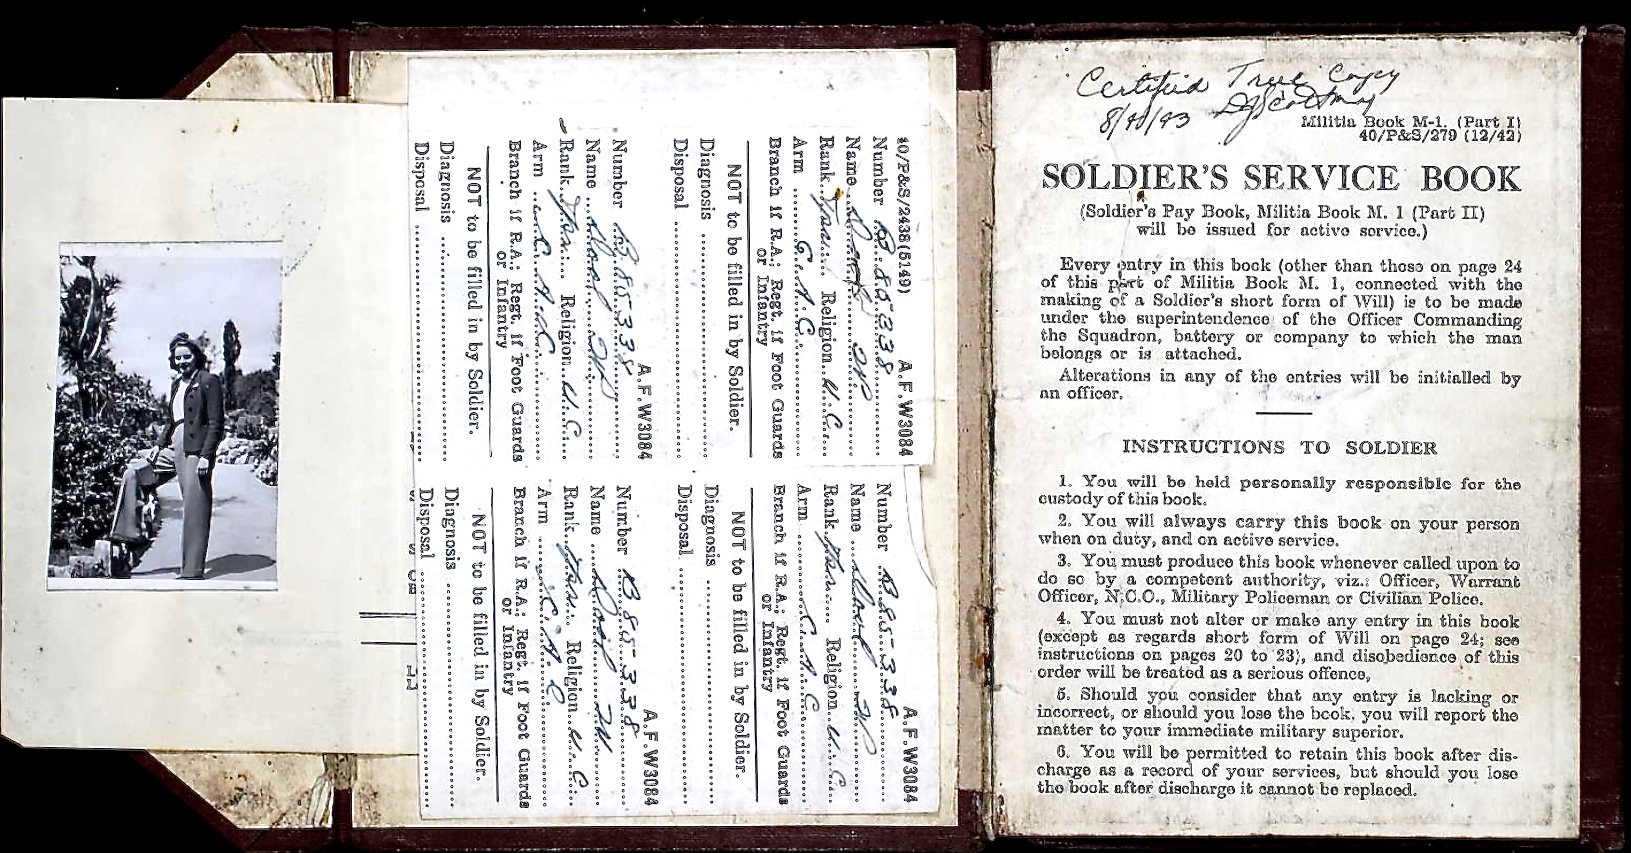 40/P&S/2438(5149) A.F.W3084
Number B.85338
Name
Rank Religion U.C.
Arm C.A.C.
Branch if R.A.; Regt. if Foot Guards
or Infantry
NOT to be filled in by Soldier.
Diagnosis
Disposal
A.F.W3084
Number B.85338
Name
Rank Religion U.C.
Arm C.A.C.
Branch if R.A.; Regt. if Foot Guards
or Infantry
NOT to be filled in by Soldier.
Diagnosis
Disposal
A.F.W3084
Number B85338
Name
Rank Religion U.C.
Arm C.A.C.
Branch if R.A.; Regt. if Foot Guards
or Infantry
NOT to be filled in by Soldier.
Diagnosis
Disposal
A.F.W3084
Number B85338
Name
Rank Religion U.C.
Arm C.A.C
Branch if R.A.; Regt. if Foot Guards
or Infantry
NOT to be filled in by Soldier.
Diagnosis
Disposal
Certified True Copy
Militia Book M-1. (Part I)
40/P&S/279 (12/42)
SOLDIER'S SERVICE BOOK
(Soldier's Pay Book, Militia Book M. 1 (Part II)
will be issued for active service.)
Every entry in this book (other than those on page 24
of this part of Militia Book M. 1, connected with the
making of a Soldier's short form of Will) is to be made
under the superintendence of the Officer Commanding
the Squadron, battery or company to which the man
belongs or is attached.
Alterations in any of the entries will be initialled by
an officer.
INSTRUCTIONS TO SOLDIER
1. You will be held personally responsible for the
custody of this book.
2. You will always carry this book on your person
when on duty, and on active service.
3. You must produce this book whenever called upon to
do so by a competent authority, viz.: Officer, Warrant
Officer, N.C.O., Military Policeman or Civilian Police.
4. You must not alter or make any entry in this book
(except as regards short form of Will on page 24; see
instructions on pages 20 to 23), and disobedience of this
order will be treated as a serious offence,
5. Should you consider that any entry is lacking or
incorrect, or should you lose the book, you will report the
matter to your immediate military superior.
6. You will be permitted to retain this book after dis-
charge as a record of your services, but should you lose
the book after discharge it cannot be replaced.